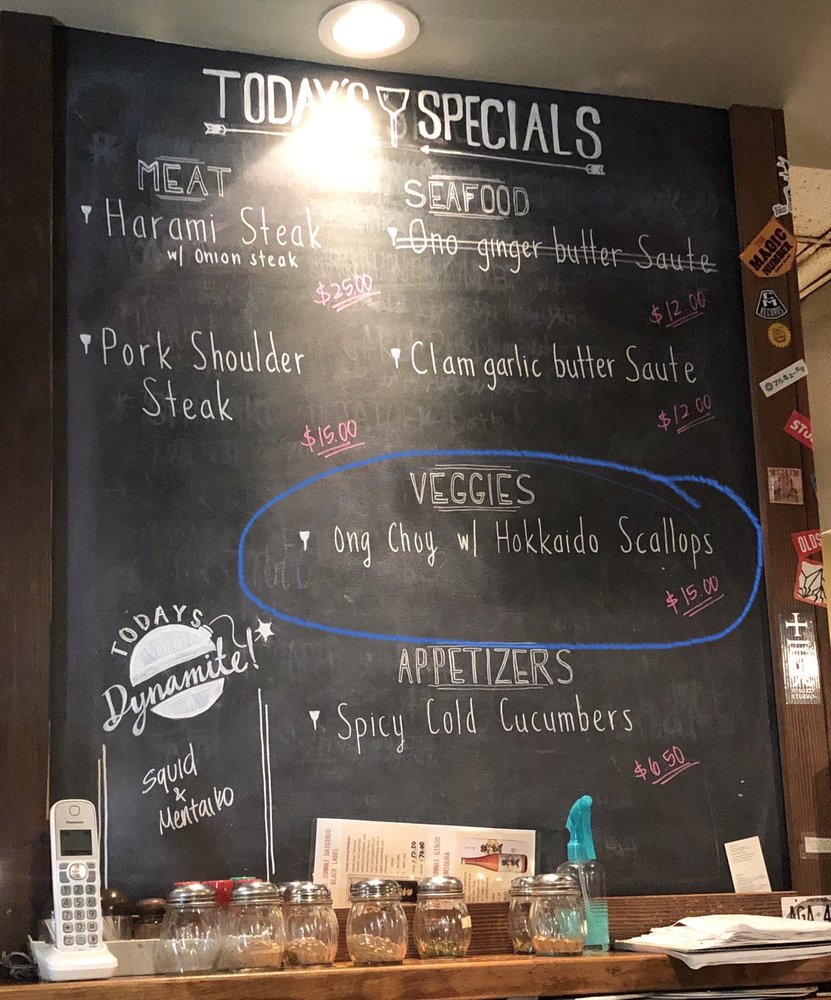 TODAY'S SPECIALS
MEAT
Harami Steak
w/ onion steak
$25.00
Pork Shoulder
Steak
$15.00
SEAFOOD
Ono ginger butter Saute
$12.00
Clam garlic butter Saute
$12.00
VEGGIES
Ong Choy w/ Hokkaido Scallops
$15.00
APPETIZERS
Spicy Cold Cucumbers
$6.50
TODAYS
Dynamite!
Squid
&
Mentaiko
MAGIC
NUMBER
RECORDS
OLDS
Panasonic
ZUNMAI DAIGINJO
BLACK LABEL